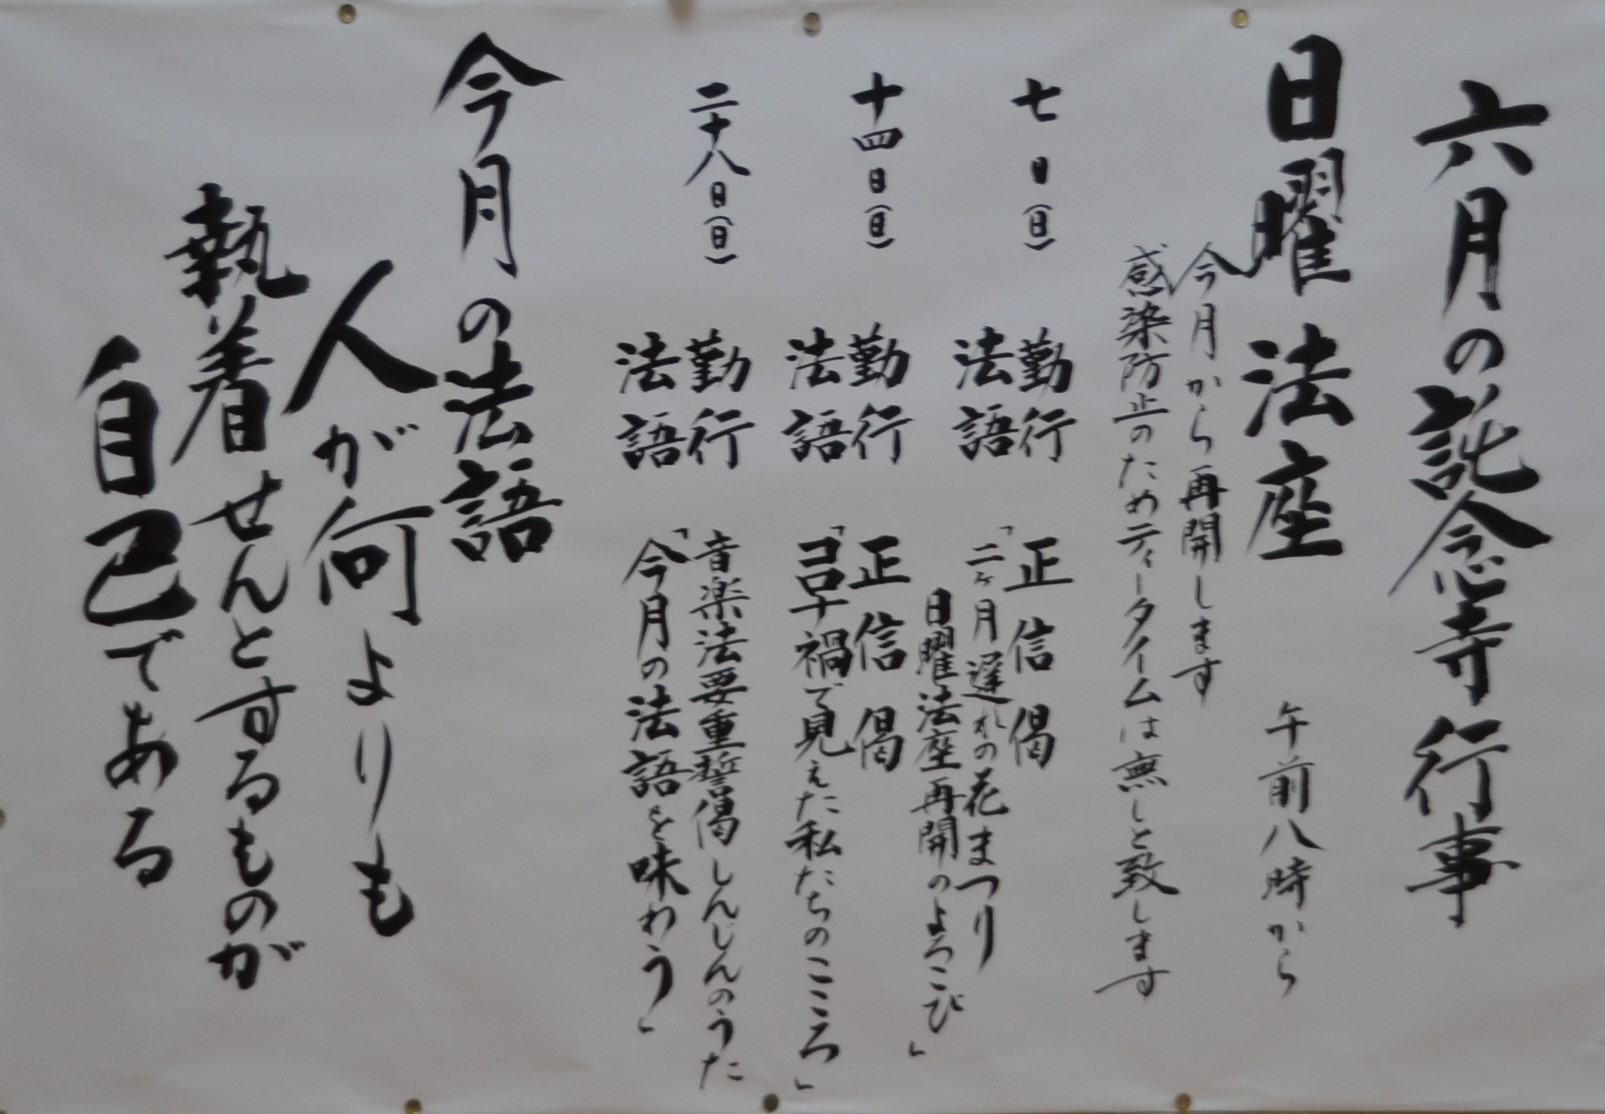 六月の託念寺行事
日曜法座 午前八時から
今月から再開します
感染防止のためティータイムは無しと致します
七日(日) 勤行 正信偈
法語 「二ヶ月遅れの花まつり
日曜法座再開のよろこび」
十四日(日) 勤行 正信偈
法語 「コロナ禍で見えた私たちのこころ」
二十八日(日) 勤行 音楽法要重誓偈しんじんのうた
法語 「今月の法語を味わう」
今月の法語
人が何よりも
執着せんとするものが
自己である